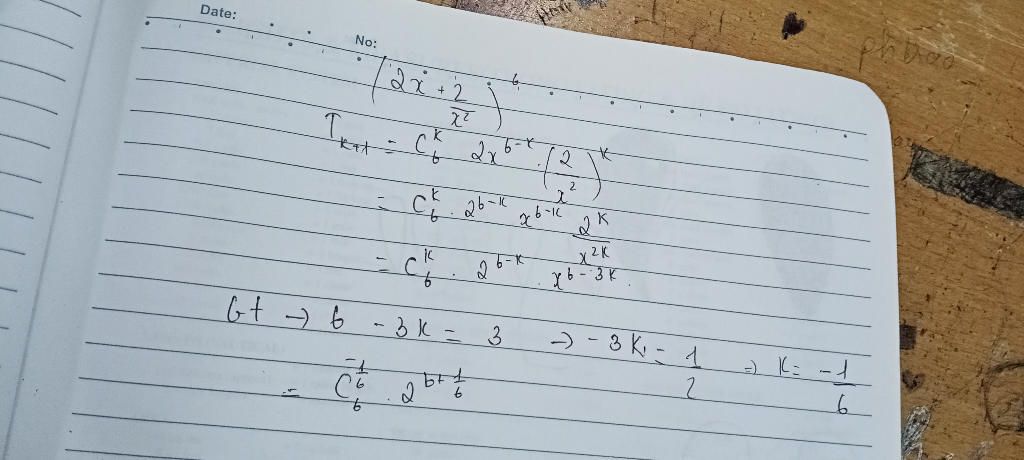 Date:
No:
(2x + 2/x²)⁶
T_{k+1} = C₆ᵏ 2x^{6-k} · (2/x²)^k
= C₆ᵏ · 2^{6-k} x^{6-k} 2^k/x^{2k}
= C₆ᵏ · 2^{6-k} · x^{6-3k}.
Gt → 6 - 3k = 3 → -3k = 1/2 → k = -1/6
= C₆^{-1/6} · 2^{6+1/6}